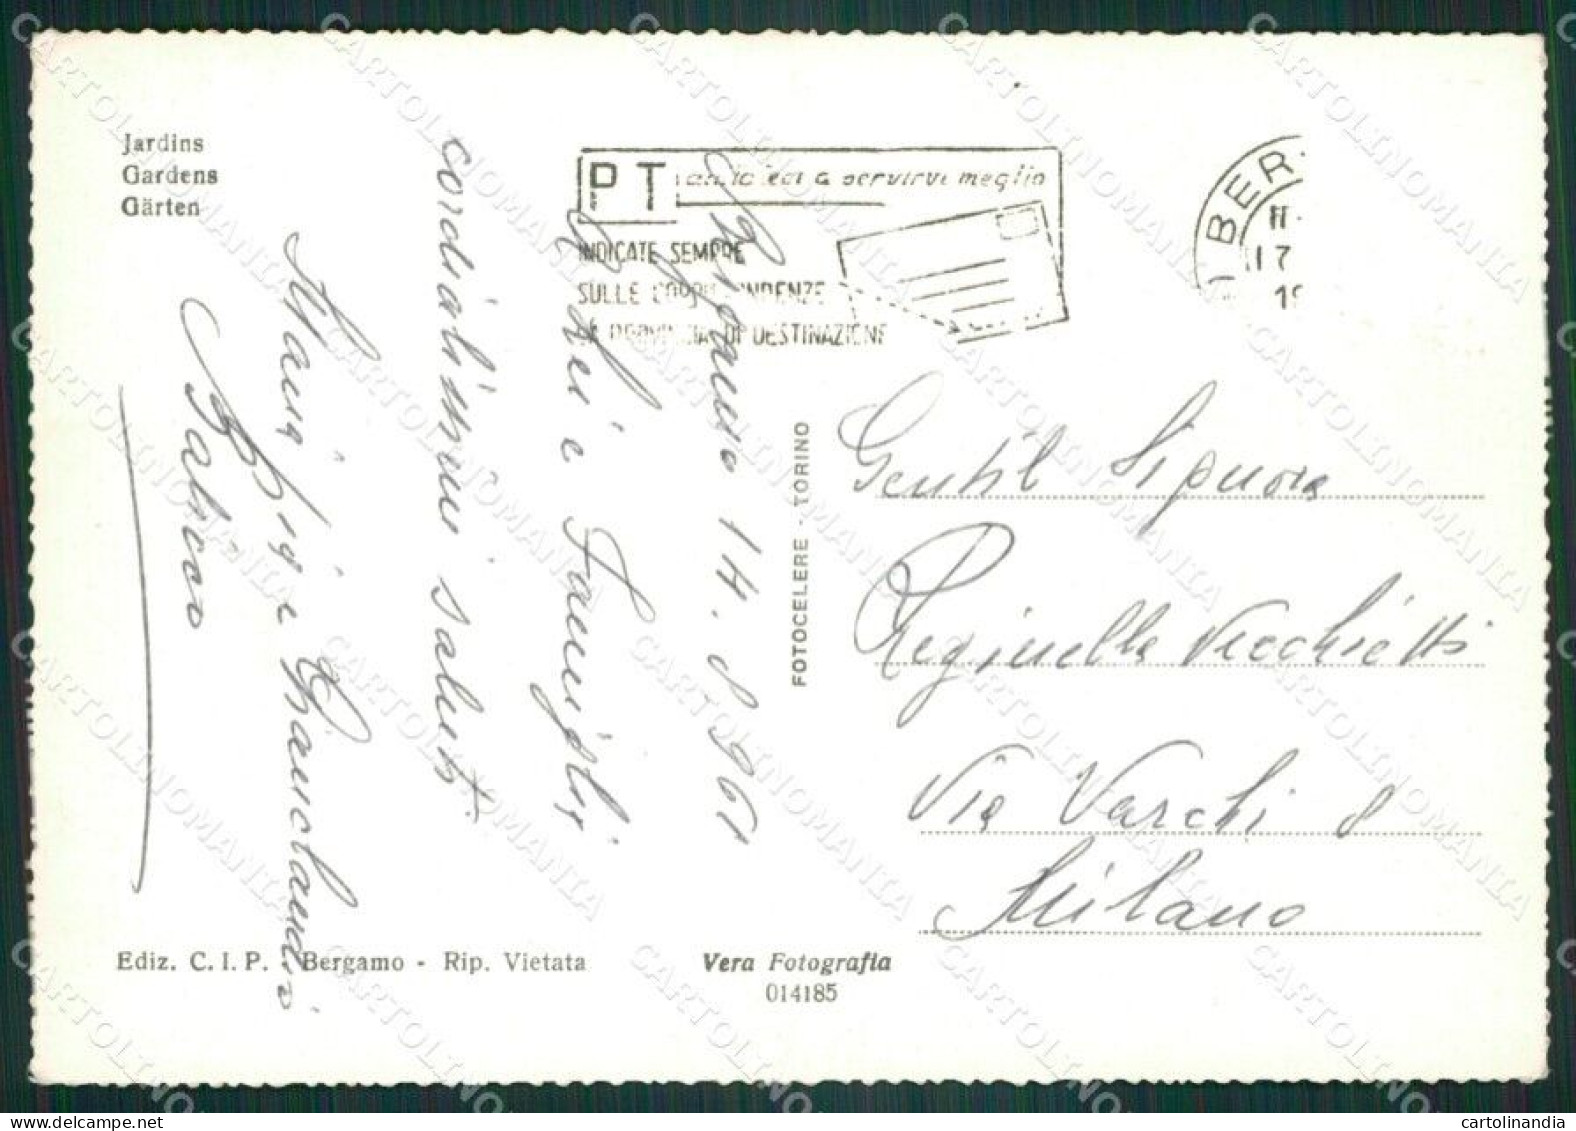 Jardins
Gardens
Gärten
PT aiutateci a servirvi meglio
INDICATE SEMPRE
SULLE CORRISPONDENZE
LA PROVINCIA DI DESTINAZIONE
BER
17
19
14.8.961
A Lei e famiglia
cordialissimi saluti
FOTOCELERE - TORINO
Gentil Signora
Reginella Vecchietti
Via Varchi 8
Milano
Ediz. C. I. P. - Bergamo - Rip. Vietata
Vera Fotografia
014185
CARTOLINOMANIA
Delcampe.net
cartolinandia